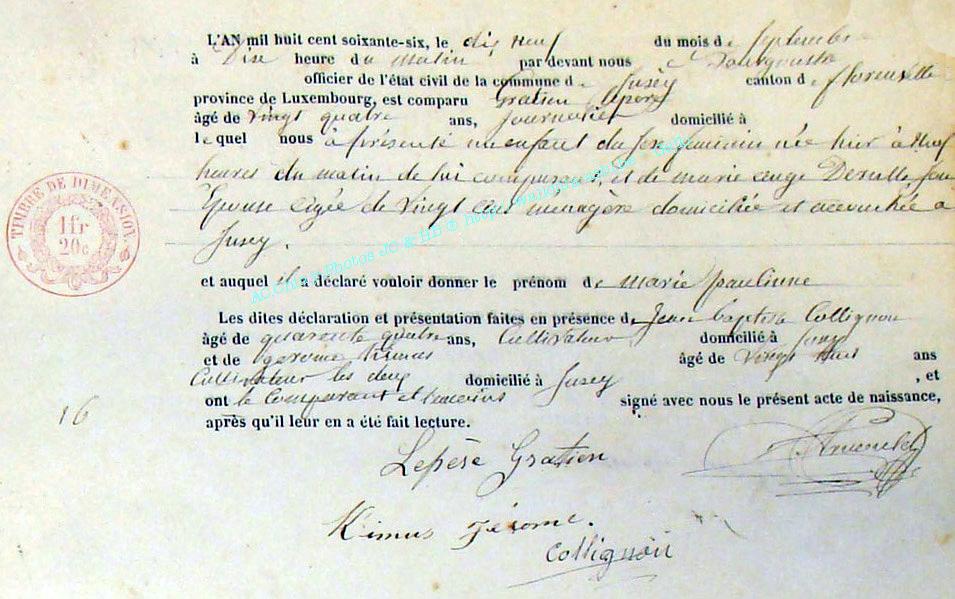 L'AN mil huit cent soixante-six, le dix neuf du mois de septembre
à Dise heure du matin par devant nous
officier de l'état civil de la commune de Jusey canton de florenville
province de Luxembourg, est comparu Gratien Leperé
âgé de Vingt quatre ans, Journalier domicilié à
lequel nous à présenté un enfant du sexe feminin née hier à Neuf
heures du matin de lui comparant, et de marie ange son
Epouse agée de Vingt ans ménagère domiciliée et accouchée a
Jusey.
et auquel il a déclaré vouloir donner le prénom de marie paulinne
Les dites déclaration et présentation faites en présence de Jean baptiste Collignon
âgé de quarente quatre ans, Cultivateur domicilié à
et de gerome Kimus âgé de Vingt ans
Cultivateur les deux domicilié à Jusey , et
ont le comparant et temoins signé avec nous le présent acte de naissance,
après qu'il leur en a été fait lecture.
16
TIMBRE DE DIMENSION
1fr
20c
Lepèse Gratien
Kimus Jérome.
Collignon